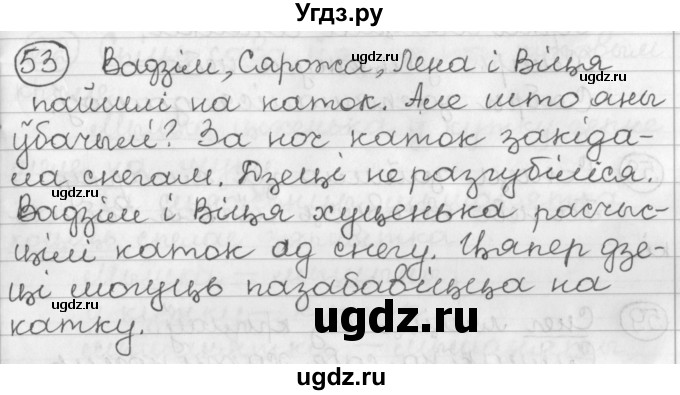 Угдз.ру
53 Вадзім, Сарожа, Лена і Віця
пайшлі на каток. Але што яны
ўбачылі? За ноч каток закіда-
ла снегам. Дзеці не разгубіліся.
Вадзім і Віця хуценька расчыс-
цілі каток ад снегу. Цяпер дзе-
ці могуць пазабавіцца на
катку.
ugdz.ru
ugdz.ru
ugdz.ru
ugdz.ru
ugdz.ru
ugdz.ru
ugdz.ru
ugdz.ru